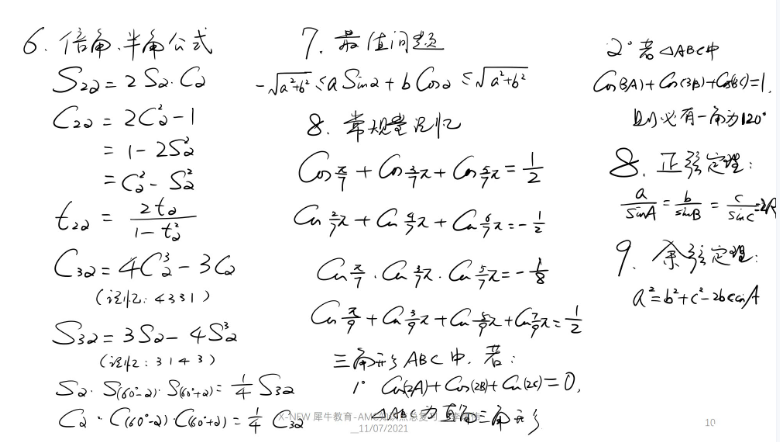 6. 倍角.半角公式
S2α = 2Sα·Cα
C2α = 2C²α - 1
= 1 - 2S²α
= C²α - S²α
t2α = 2tα / (1 - t²α)
C3α = 4C³α - 3Cα
(记忆: 4331)
S3α = 3Sα - 4S³α
(记忆: 3143)
Sα · S(60°-α) · S(60°+α) = 1/4 S3α
Cα · C(60°-α) · C(60°+α) = 1/4 C3α
7. 最值问题
-√(a²+b²) ≤ a Sinα + b Cosα ≤ √(a²+b²)
8. 常规量记忆
Cos π/7 + Cos 3/7 π + Cos 5/7 π = 1/2
Cos 2/7 π + Cos 4/7 π + Cos 6/7 π = -1/2
Cos π/7 · Cos 3/7 π · Cos 5/7 π = -1/8
Cos π/9 + Cos 3/9 π + Cos 5/9 π + Cos 7/9 π = 1/2
三角形ABC中, 若:
1° Cos(2A) + Cos(2B) + Cos(2C) = 0,
△ABC为直角三角形
2° 若△ABC中
Cos(3A) + Cos(3B) + Cos(3C) = 1,
则必有一角为120°
8. 正弦定理:
a/SinA = b/sinB = c/sinC = 2R
9. 余弦定理:
a² = b² + c² - 2bccosA
X-NEW 犀牛教育-AM
11/07/2021
10